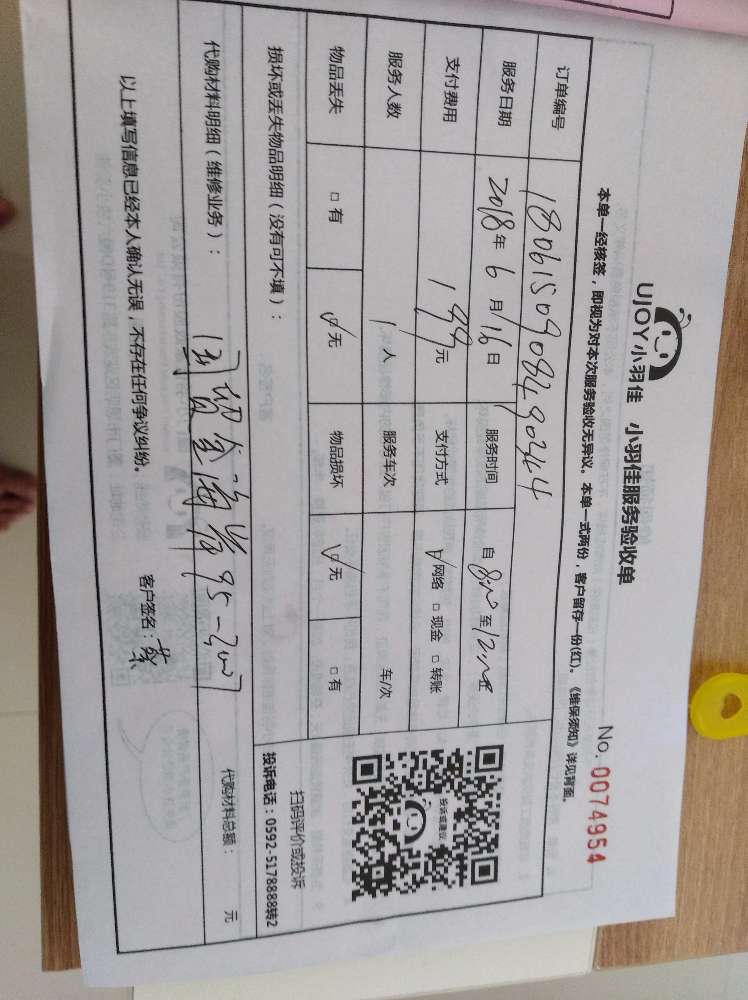 UJOY小羽佳 小羽佳服务验收单
No. 0074954
本单一经核签,即视为对本次服务验收无异议。本单一式两份,客户留存一份(红)。《维保须知》详见背面。
订单编号
服务日期 2018年 6月16日 服务时间 自 8:00 至 12:00
支付费用 199元 支付方式 网络 □ 现金 □ 转账
服务人数 1人 服务车次 车/次
物品丢失 □ 有 ☑ 无 物品损坏 ☑ 无 □ 有
投诉或建议
扫码评价或投诉
投诉电话:0592-5178888转2
损坏或丢失物品明细(没有可不填):
代购材料明细(维修业务): 代购材料总额: 元
以上填写信息已经本人确认无误,不存在任何争议纠纷。 客户签名: